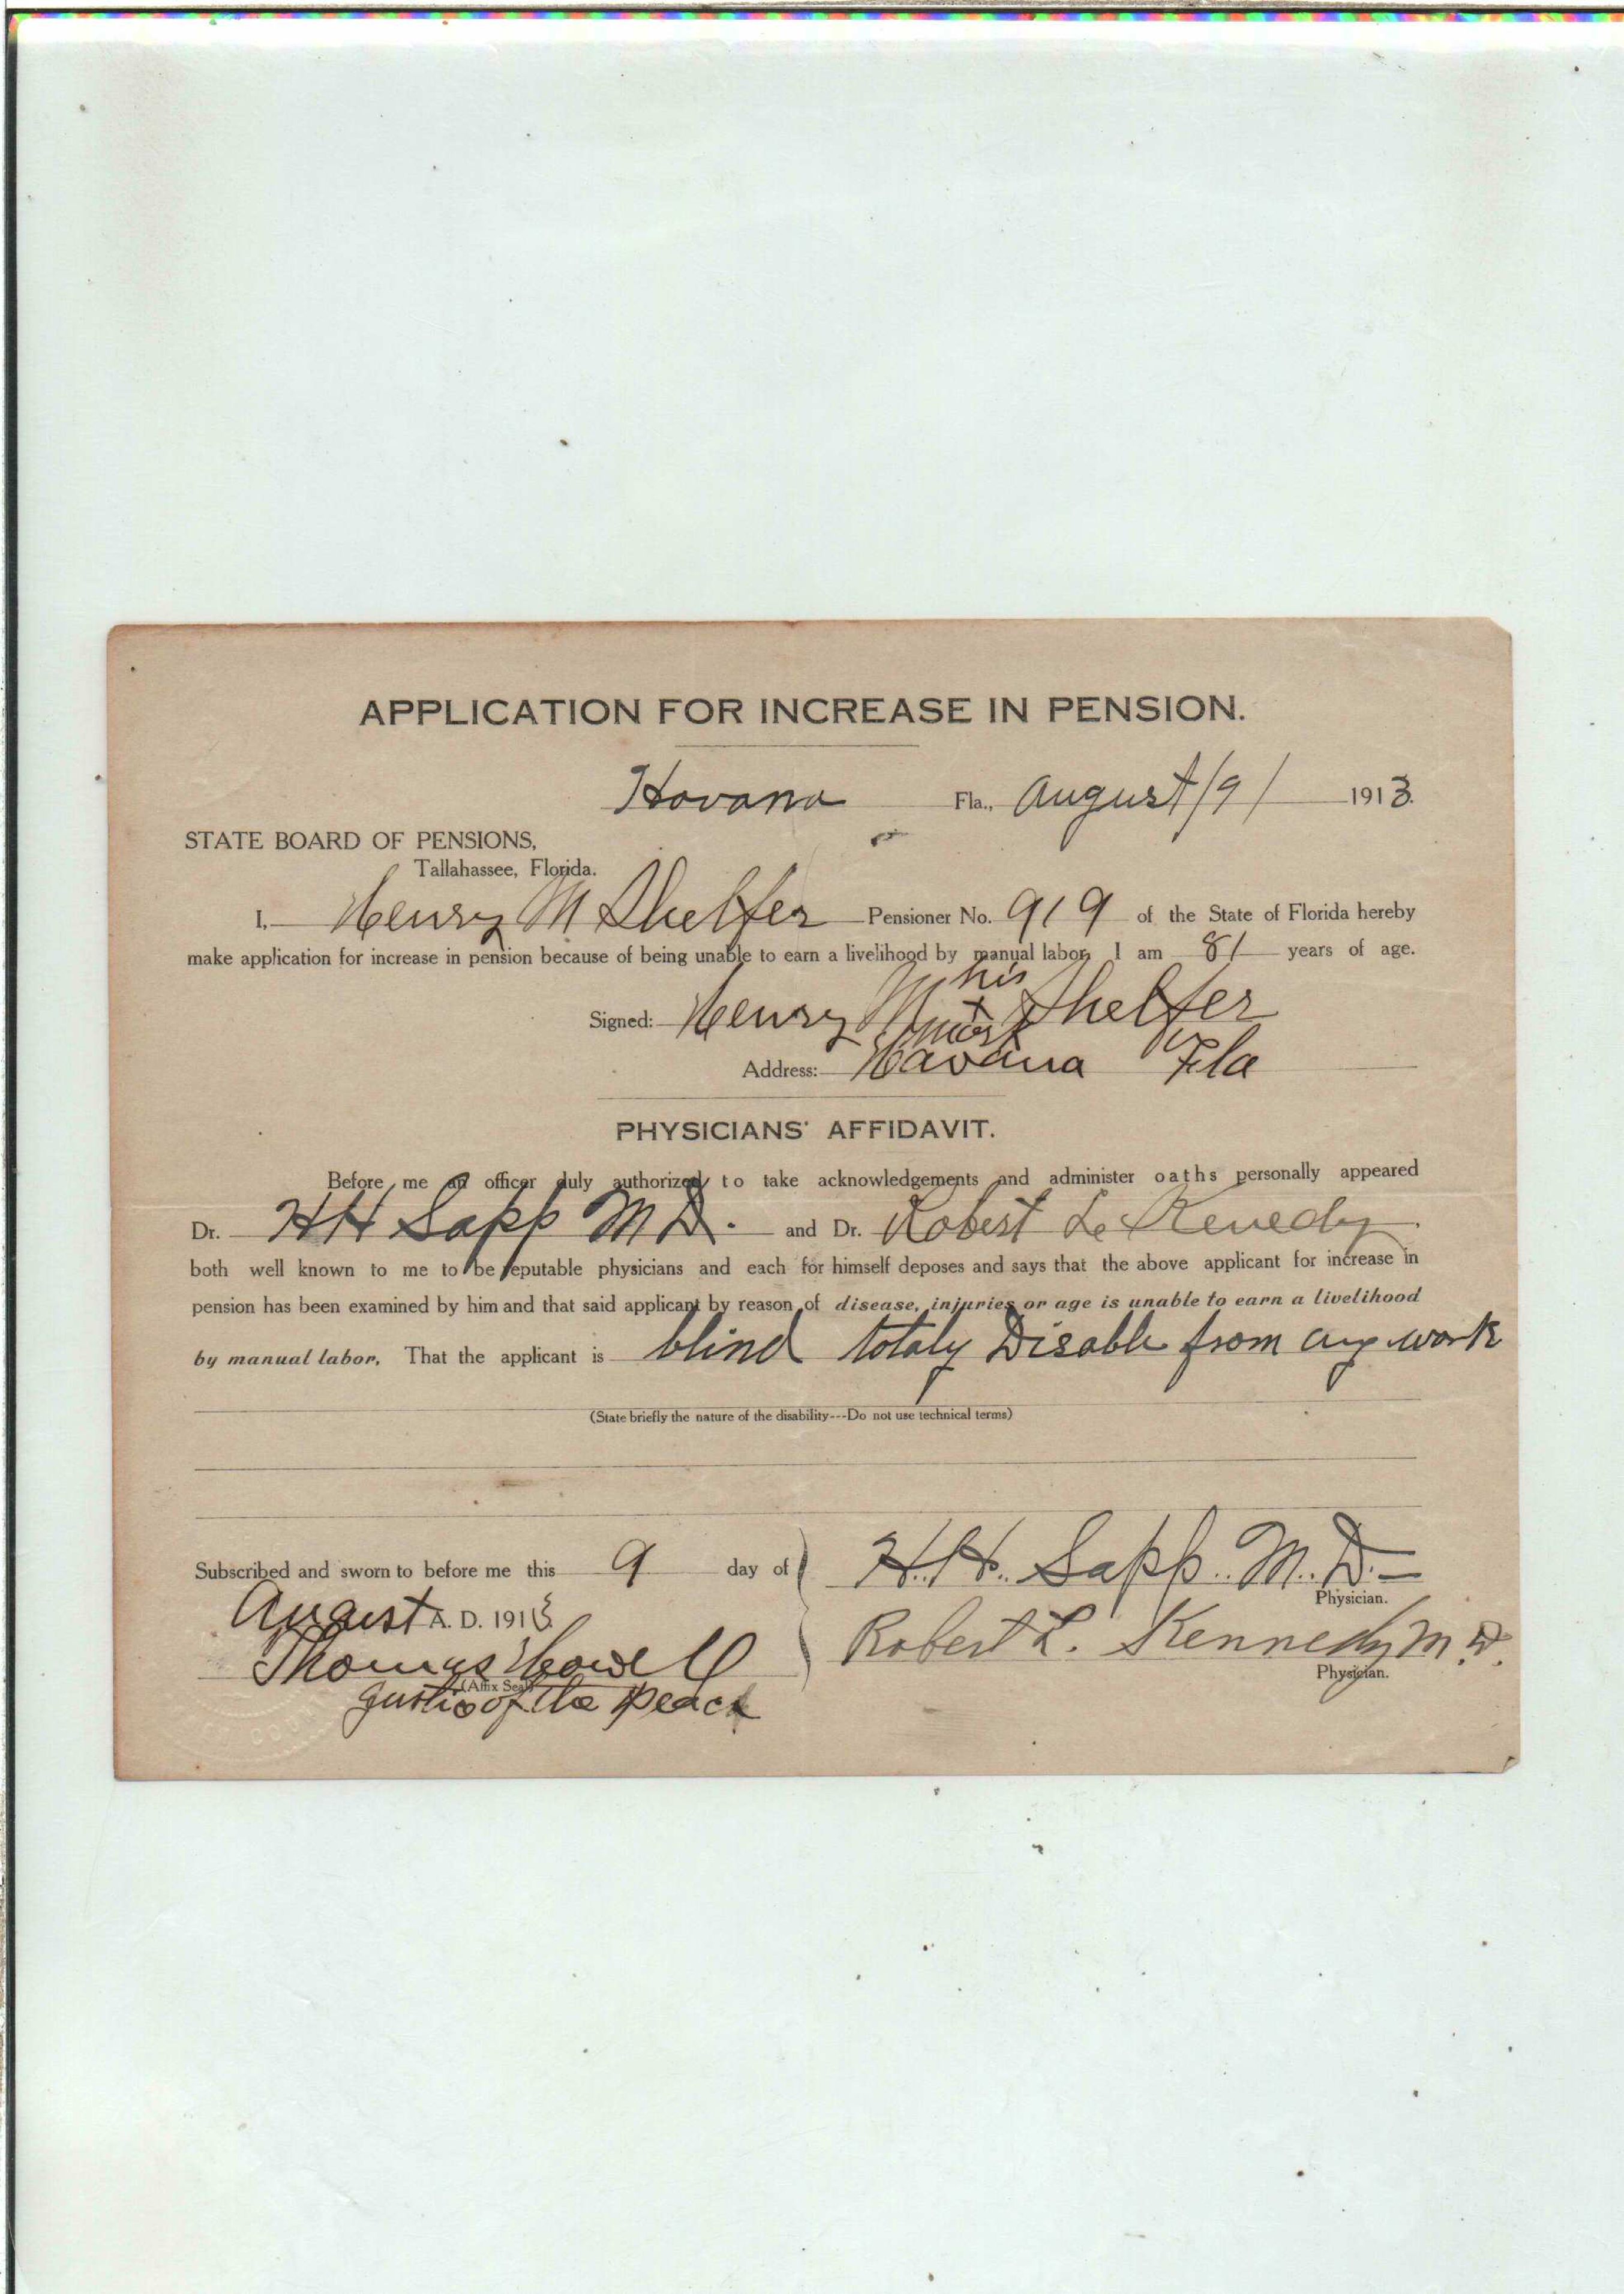 APPLICATION FOR INCREASE IN PENSION.
Havana Fla., August /9/ 1913.
STATE BOARD OF PENSIONS,
Tallahassee, Florida.
I, Henry M Shelfer Pensioner No. 919 of the State of Florida hereby
make application for increase in pension because of being unable to earn a livelihood by manual labor, I am 81 years of age.
his
Signed: Henry M x Shelfer
mark
Address: Havana Fla
PHYSICIANS' AFFIDAVIT.
Before me an officer duly authorized to take acknowledgements and administer oaths personally appeared
Dr. HH Sapp M D. and Dr. Robert L. Kenedy.
both well known to me to be reputable physicians and each for himself deposes and says that the above applicant for increase in
pension has been examined by him and that said applicant by reason of disease, injuries or age is unable to earn a livelihood
by manual labor. That the applicant is blind totaly Disable from any work
(State briefly the nature of the disability---Do not use technical terms)
Subscribed and sworn to before me this 9 day of
August A. D. 1913
Thomas Howell
(Affix Seal)
Justic of the peace
H. H. Sapp. M. D.
Physician.
Robert L. Kennedy M. D.
Physician.